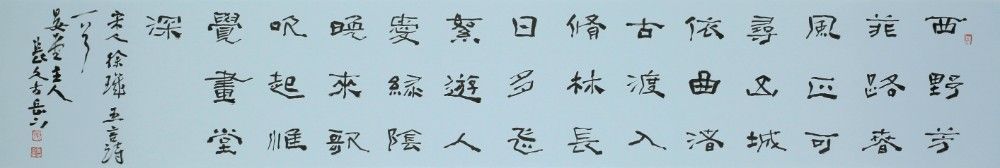 西野芳
菲路春
風正可
尋山城
依曲渚
古渡入
脩林長
日多飛
絮遊人
愛綠陰
晚來歌
吹起惟
覺畫堂
深
宋人徐璣五言詩
一首
主人